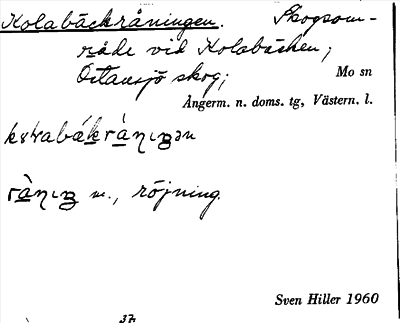 Kolabäckråningen. Skogsom-
råde vid Kolabäcken;
Östansjö skog; Mo sn
Ångerm. n. doms. tg, Västern. l.
råning m., röjning.
Sven Hiller 1960
37